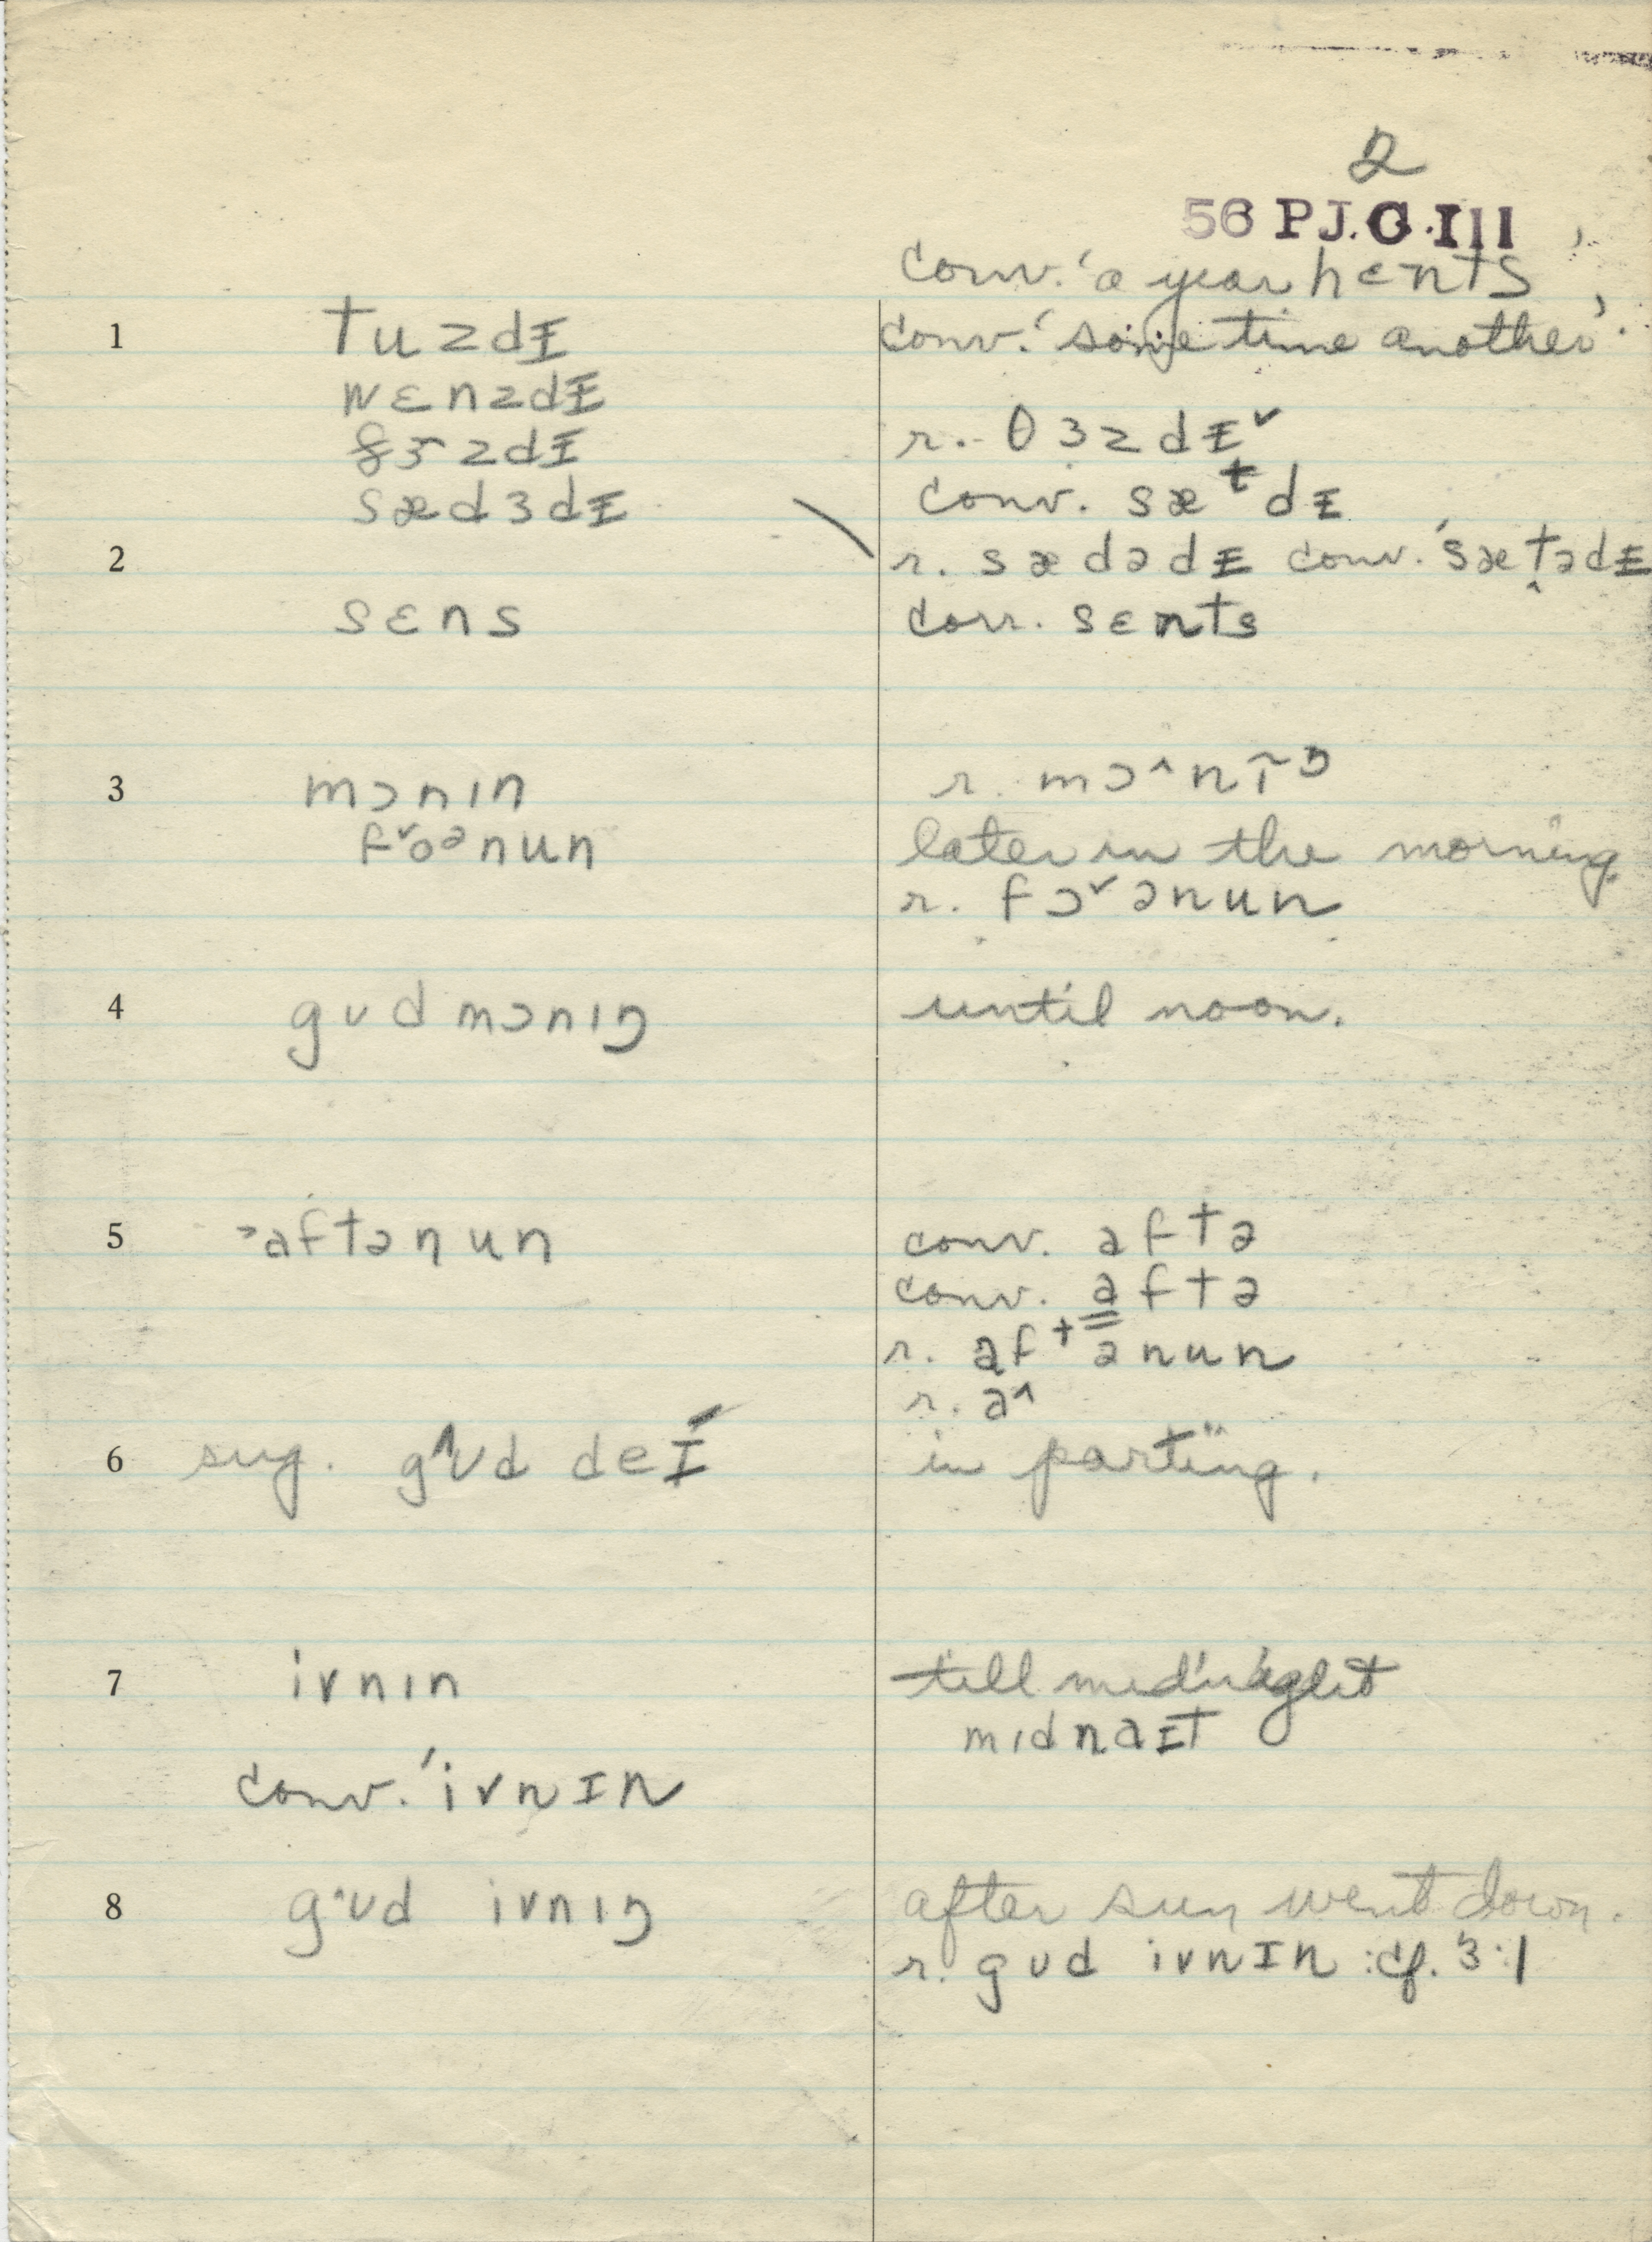 2
56 P.J.G.III
conv. 'a year hɛnts'
1 tuzdɪ conv. 'some time another'.
wɛnzdɪ
θɜzdɪ r. θɜzdɪ˅
sædɜdɪ conv. sæᵗdɪ
2 r. sædədɪ conv. 'sæt̬ədɪ
sɛns corr. sɛnts
3 mɔnɪn r. mɔ˄nɪ̃ŋ
f˅oᵊnun later in the morning
r. fɔ˅ənun
4 gʊdmɔnɪŋ until noon.
5 ˃aftənun conv. aftə
conv. a̳ftə
r. afᵗənun
r. a˄
6 sug. g˄ʊd deɪ́ in parting.
7 ivnɪn till midnight
mɪdnaɪt
conv. 'ivnɪn
8 g˄ʊd ivnɪŋ after sun went down.
r. gʊd ivnɪn :cf. 3:1